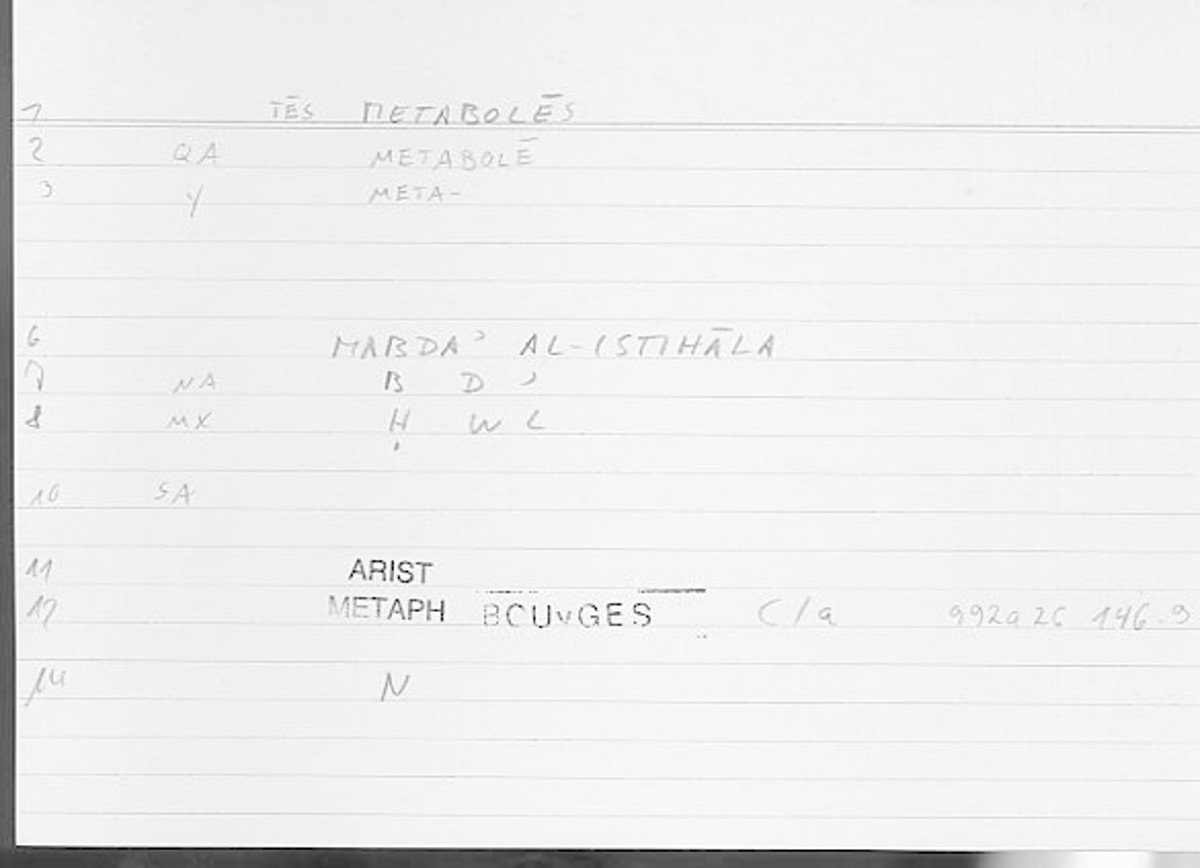 1 TĒS METABOLĒS
2 QA METABOLĒ
3 Y META-
6 MABDAʾ AL-ISTIHĀLA
7 NA B D ʾ
8 MX Ḥ W L
10 SA
11 ARIST
12 METAPH BOUYGES C/a 992a26 146.9
14 N